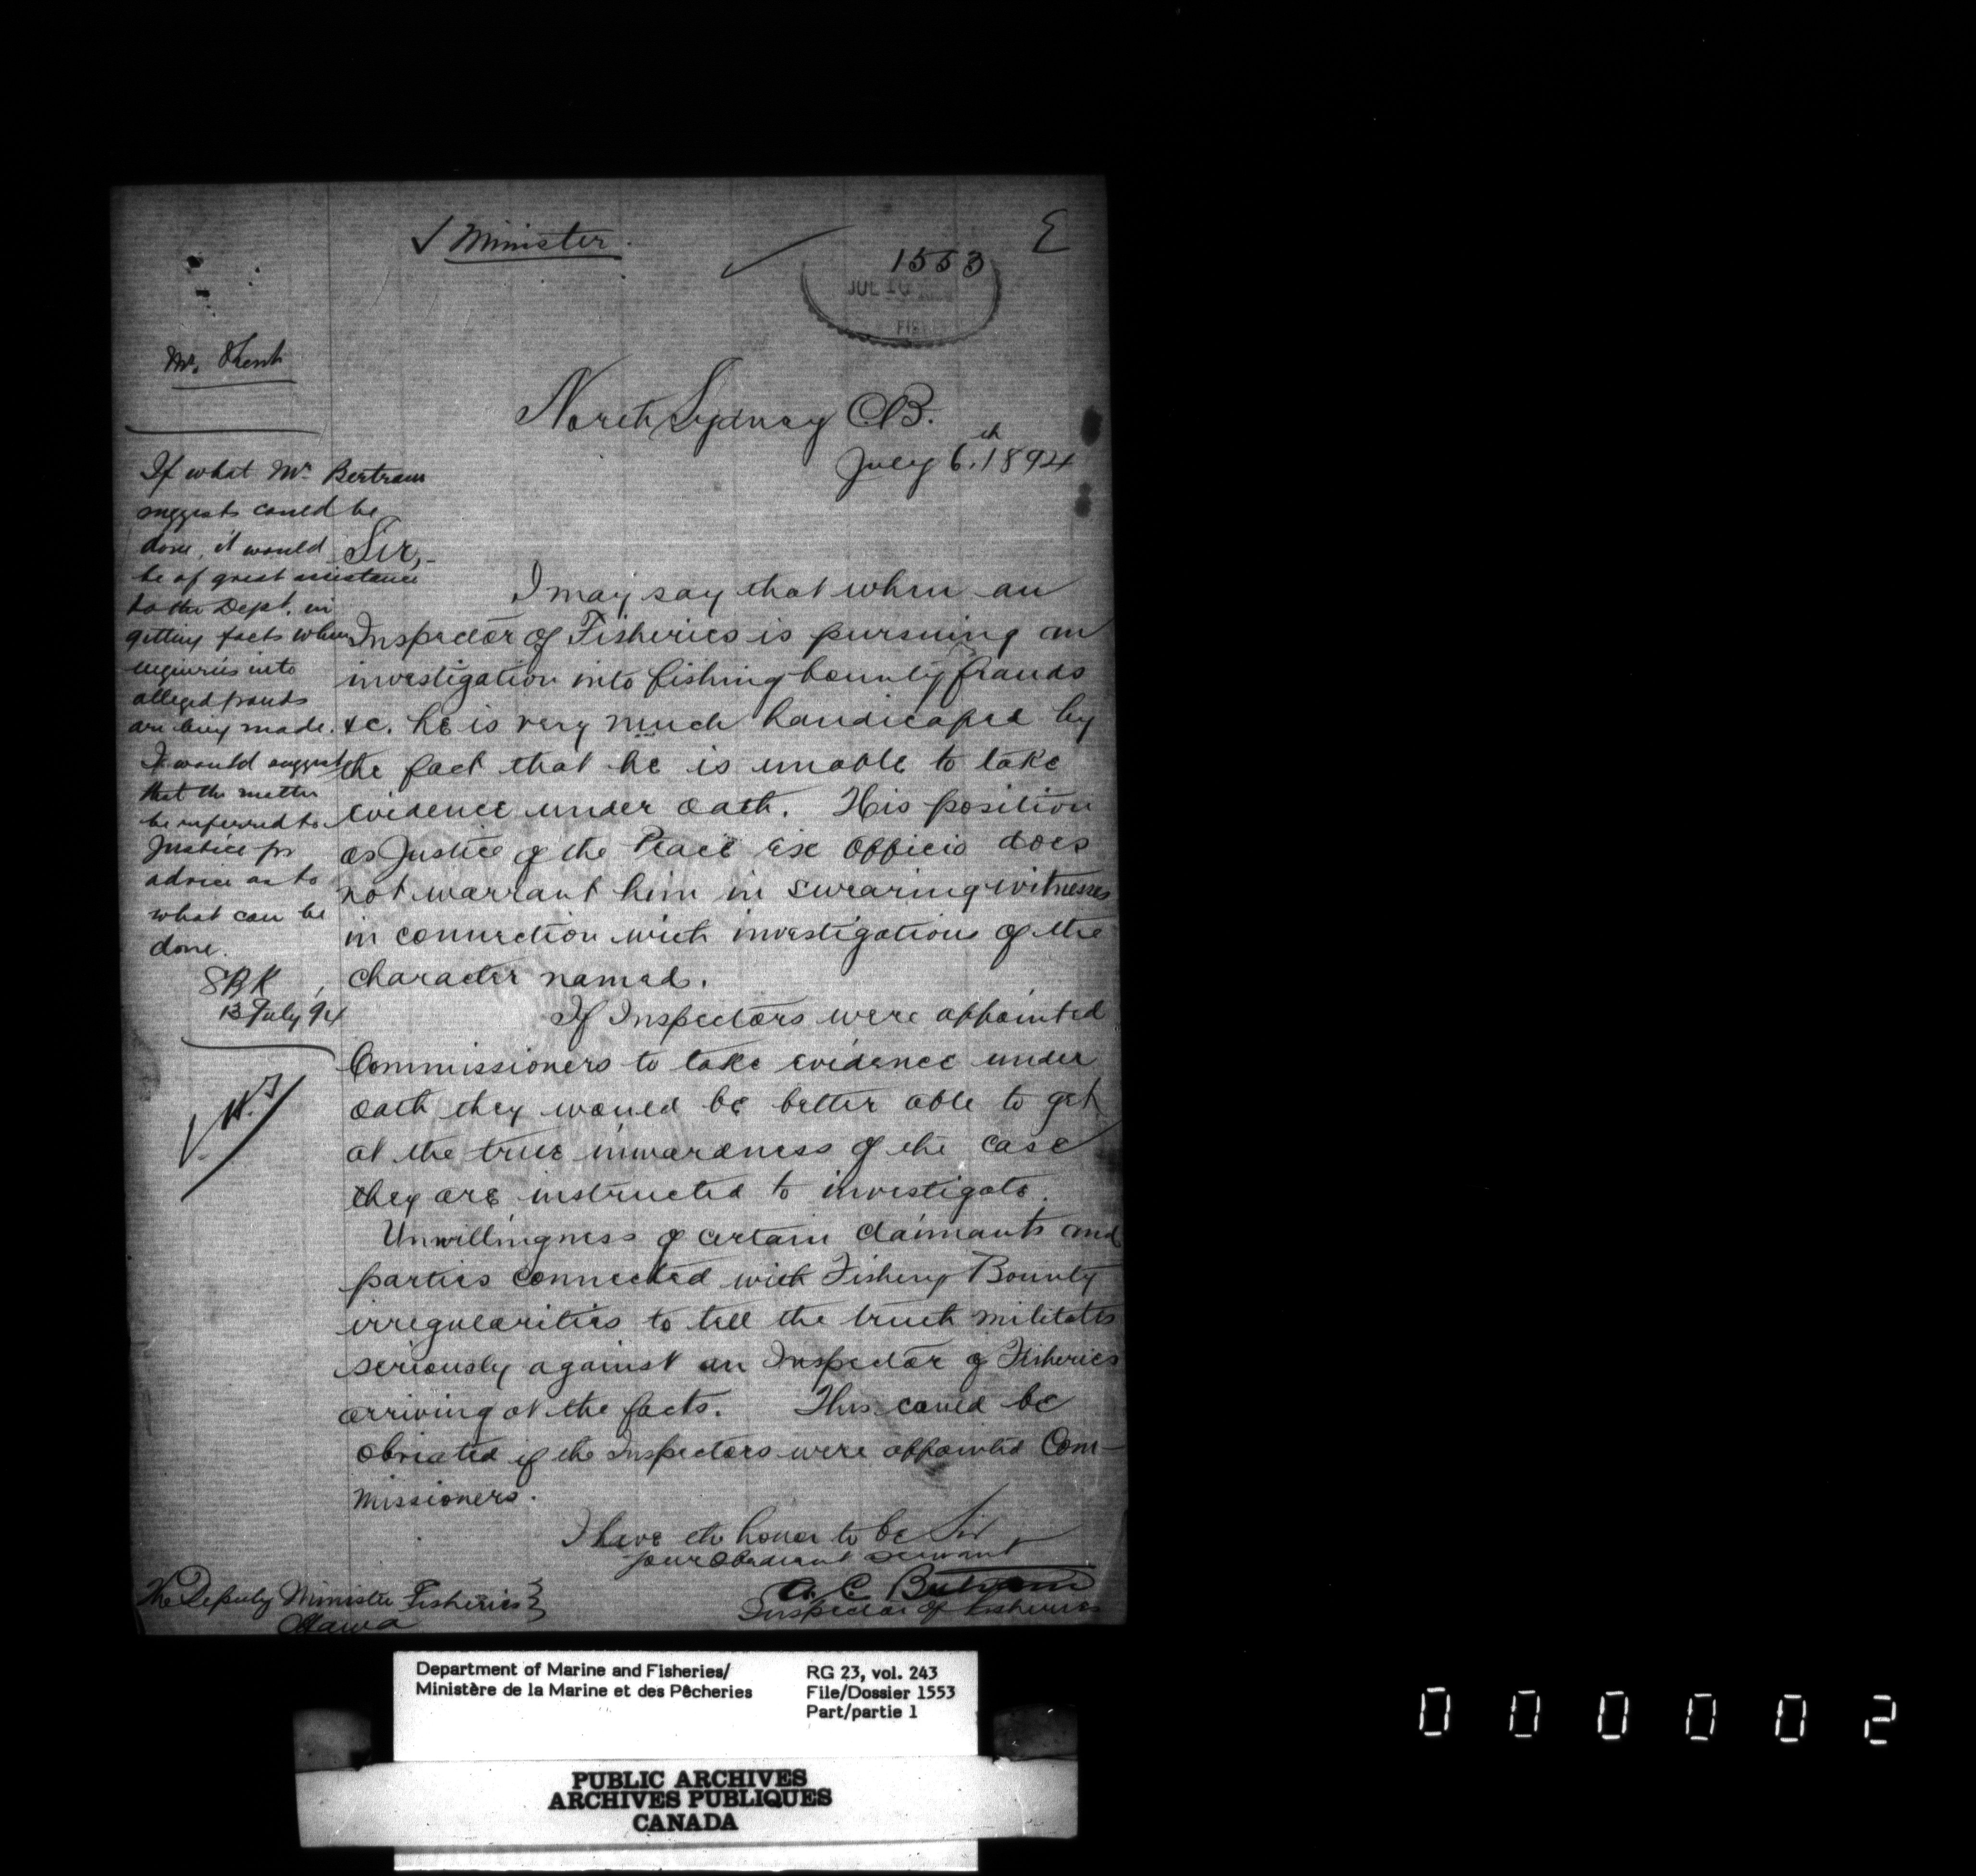 ✓ Minister.
E
1553
JUL 10
FIS
Mr. Kent
North Sydney CB.
July 6th, 1894
If what Mr Bertram
suggests could be
done, it would
be of great assistance
to the Dept. in
getting facts when
enquiries into
alleged frauds
are being made.
I would suggest
that the matter
be referred to
Justice for
advice as to
what can be
done.
13 July 94
Sir,-
I may say that when an
Inspector of Fisheries is pursuing an
investigation into fishing bounty frauds
&c. he is very much handicaped by
the fact that he is unable to take
evidence under oath. His position
as Justice of the Peace Ex Officio does
not warrant him in swearing witnesses
in connection with investigations of the
character named.
If Inspectors were appointed
Commissioners to take evidence under
oath they would be better able to get
at the true inwardness of the case
they are instructed to investigate.
Unwillingness of certain claimants and
parties connected with Fishery Bounty
irregularities to tell the truth militates
seriously against an Inspector of Fisheries
arriving at the facts. This could be
obviated if the Inspectors were appointed Com-
missioners.
I have the honor to be Sir
your obedient servant
A. C. Bertram
Inspector of Fisheries
The Deputy Minister Fisheries
Ottawa
Department of Marine and Fisheries/
Ministère de la Marine et des Pêcheries
RG 23, vol. 243
File/Dossier 1553
Part/partie 1
PUBLIC ARCHIVES
ARCHIVES PUBLIQUES
CANADA
000002